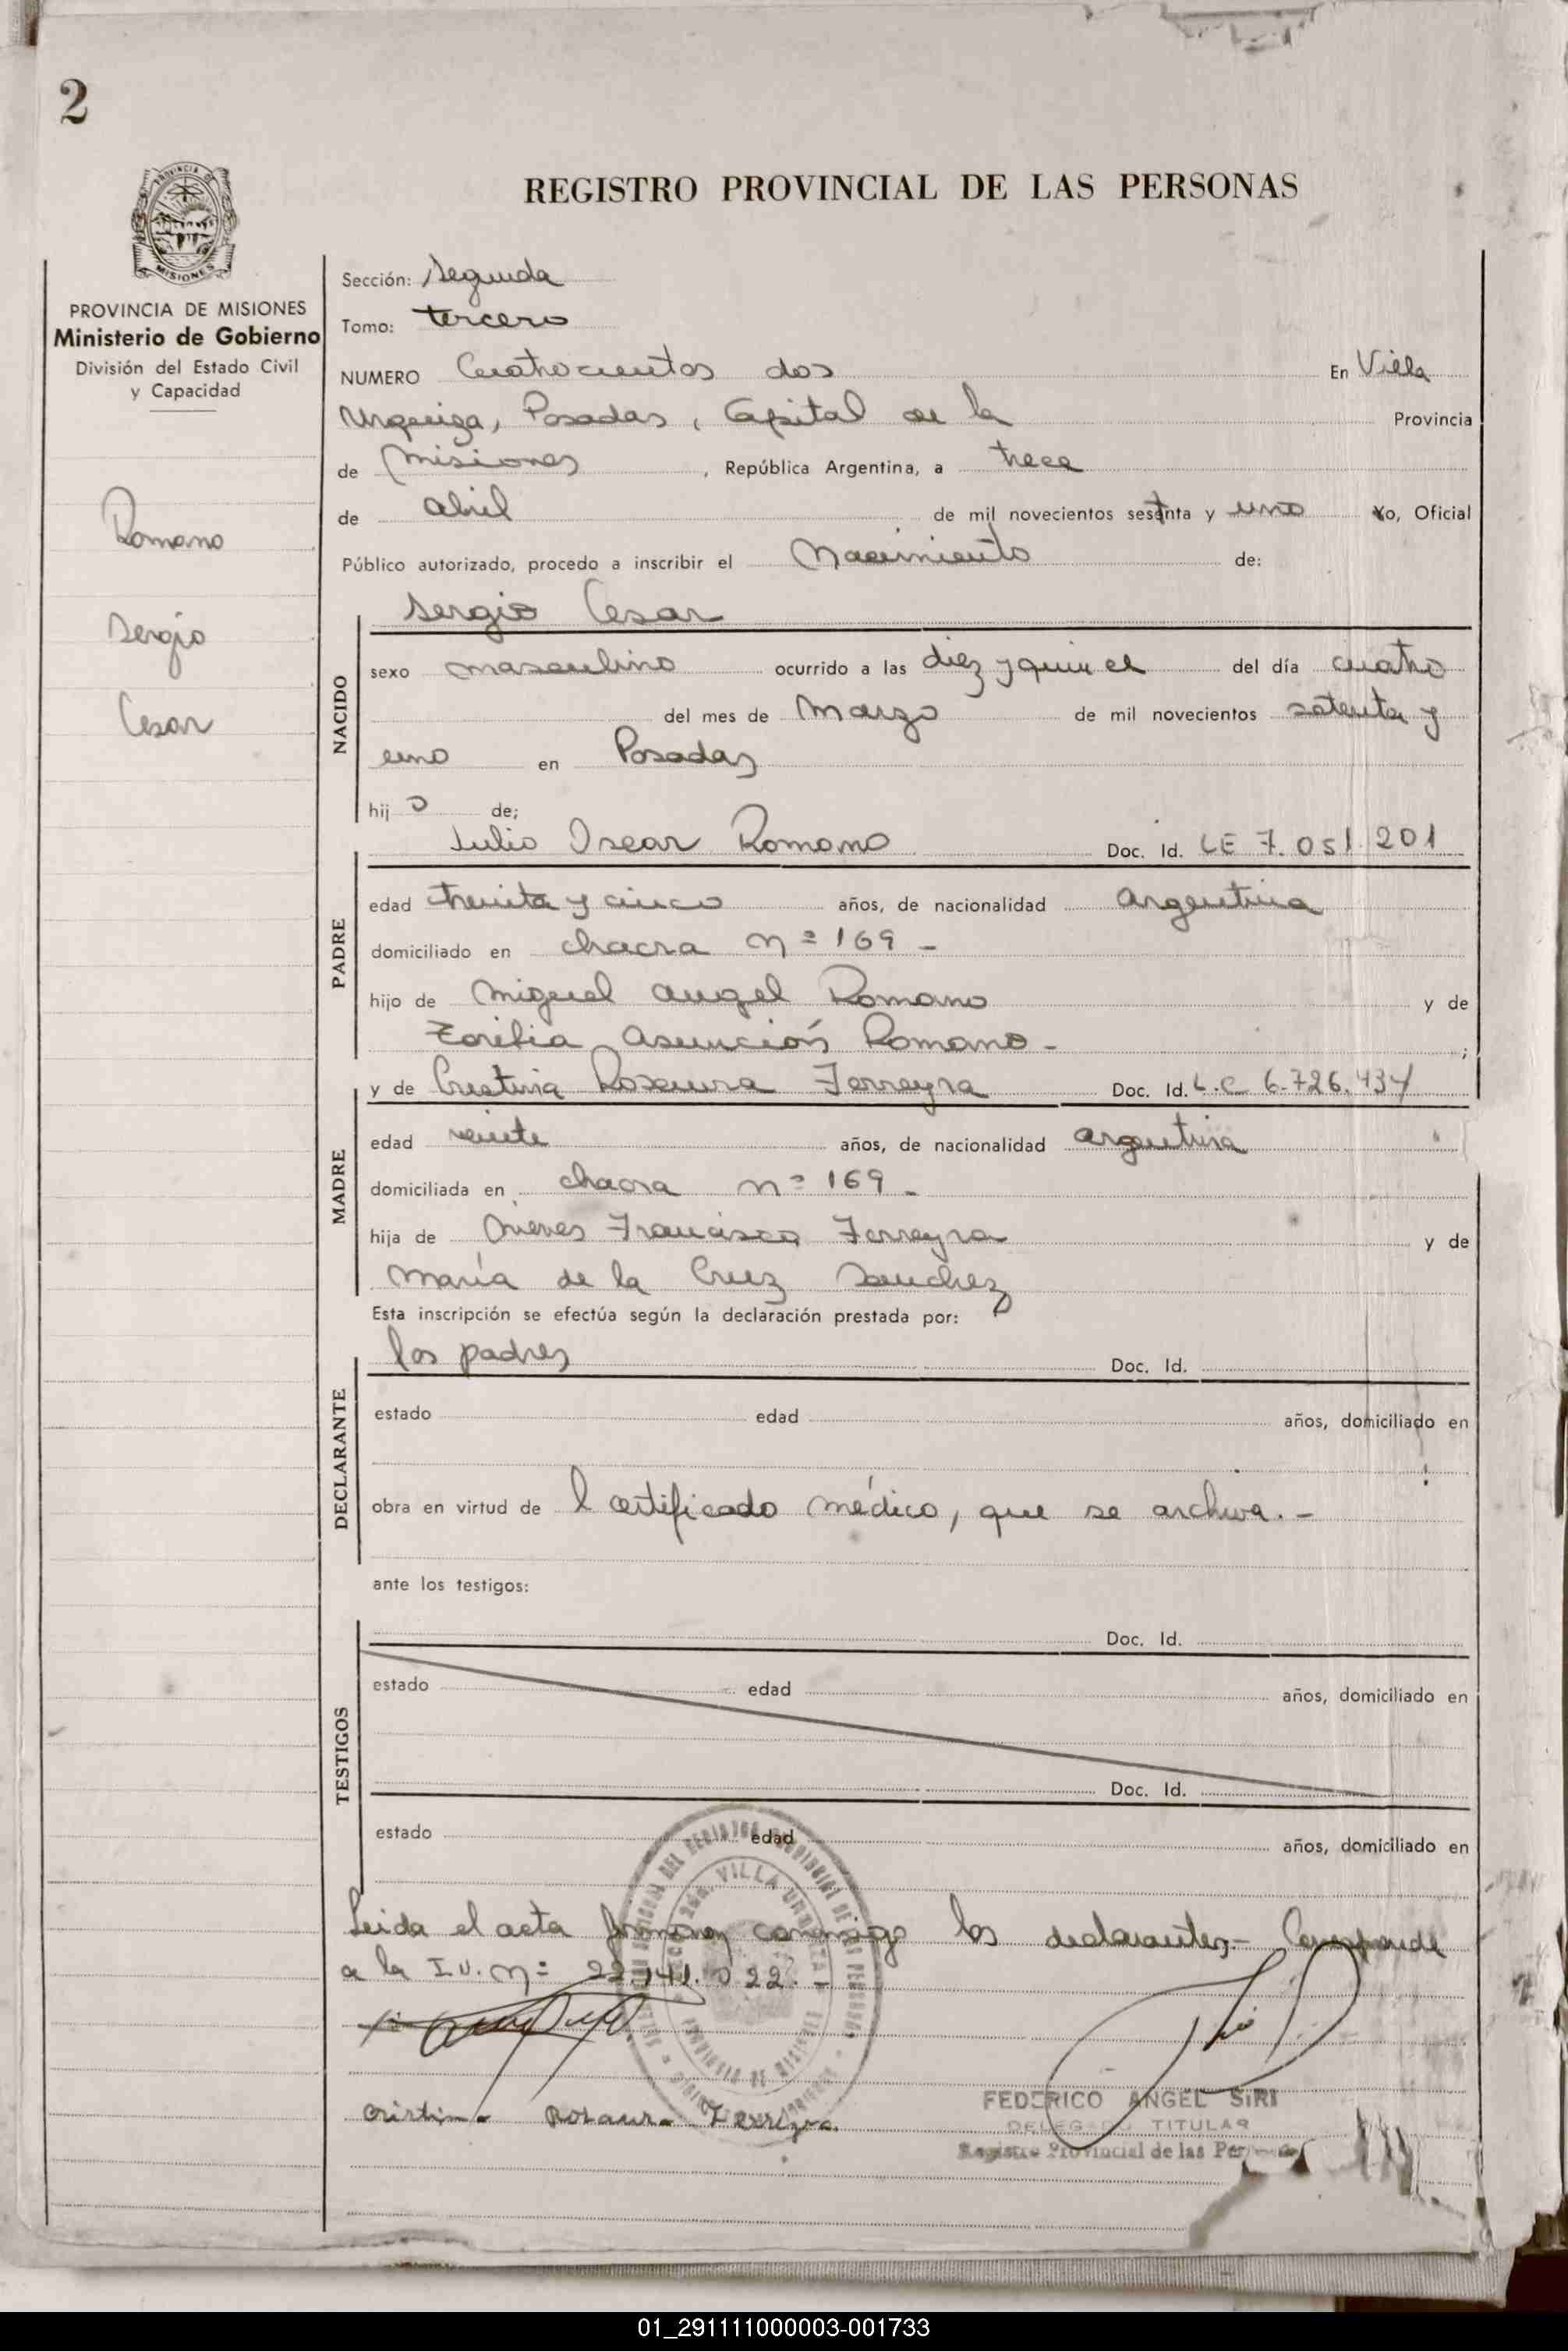 2
REGISTRO PROVINCIAL DE LAS PERSONAS
PROVINCIA DE MISIONES
Ministerio de Gobierno
División del Estado Civil
y Capacidad
Romano
Sergio
Cesar
Sección: Segunda
Tomo: tercero
NUMERO Cuatrocientos dos En Villa
Urquiza, Posadas, Capital de la Provincia
de Misiones, República Argentina, a trece
de abril de mil novecientos sesenta y uno Yo, Oficial
Público autorizado, procedo a inscribir el Nacimiento de:
Sergio Cesar
NACIDO
sexo masculino ocurrido a las diez y del día cuatro
del mes de Marzo de mil novecientos setenta y
uno en Posadas
hijo de;
Julio Oscar Romano Doc. Id. LE 7.051.201
PADRE
edad treinta y cinco años, de nacionalidad argentina
domiciliado en chacra nº 169 -
hijo de Miguel Angel Romano y de
Asunción Romano - ;
y de Cristina Rosaura Ferreyra Doc. Id. L.C 6.726.434
MADRE
edad veinte años, de nacionalidad argentina
domiciliada en chacra nº 169 -
hija de Nieves Francisco Ferreyra y de
María de la Cruz Sanchez
Esta inscripción se efectúa según la declaración prestada por:
los padres Doc. Id.
DECLARANTE
estado edad años, domiciliado en
obra en virtud de l certificado médico, que se archiva. -
ante los testigos:
Doc. Id.
TESTIGOS
estado edad años, domiciliado en
Doc. Id.
estado edad años, domiciliado en
Leida el acta firman conmigo los declarantes.- Corresponde
a la I.U. nº 22.141.022. -
Cristina Rosaura Ferreyra
FEDERICO ANGEL SIRI
DELEGADO TITULAR
Registro Provincial de las Per
01_291111000003-001733